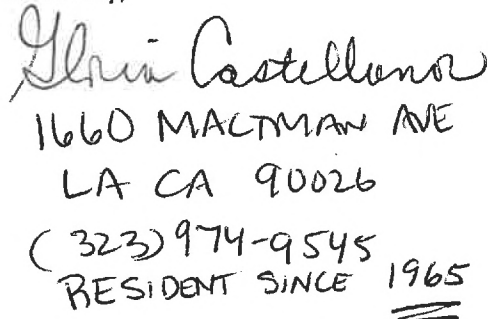 Gloria Castellanos
1660 MALTMAN AVE
LA CA 90026
(323) 974-9545
RESIDENT SINCE 1965